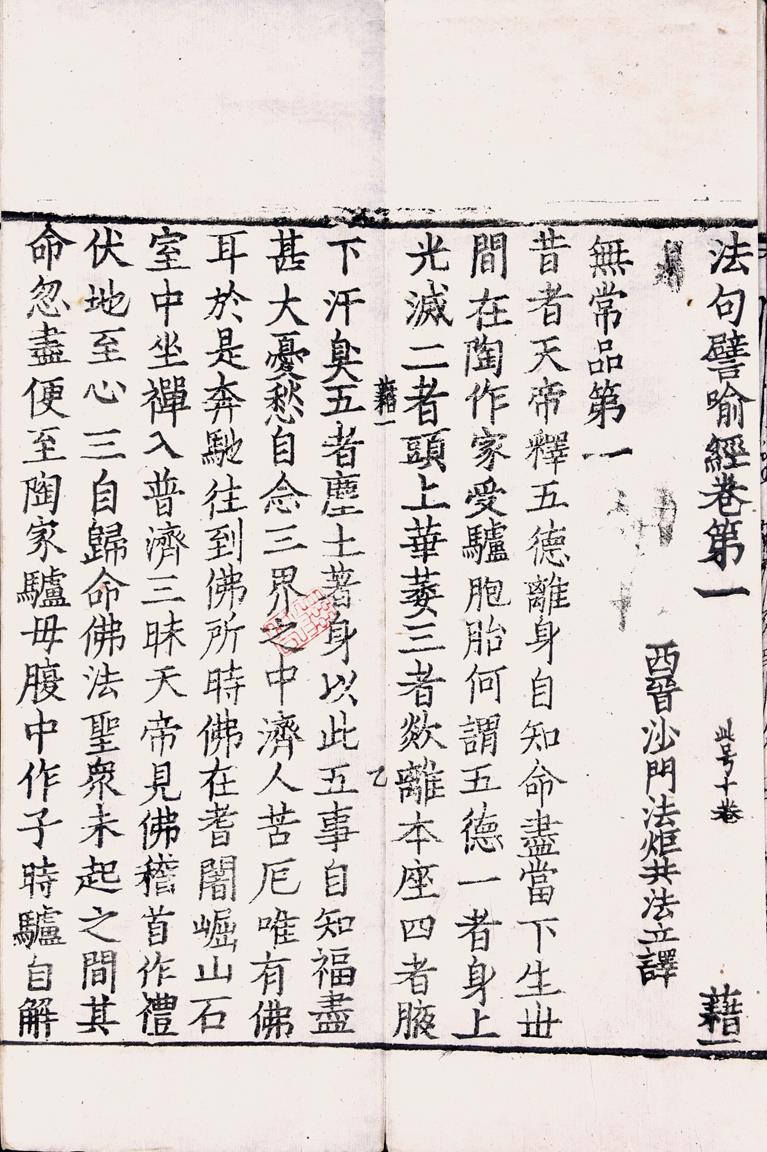 法句譬喻經卷第一 此号十卷 藉一
西晉沙門法炬共法立譯
無常品第一
昔者天帝釋五德離身自知命盡當下生丗
間在陶作家受驢胞胎何謂五德一者身上
光滅二者頭上華萎三者欻離本座四者腋
藉一 乙
下汗臭五者塵土著身以此五事自知福盡
甚大憂愁自念三界之中濟人苦厄唯有佛
耳於是奔馳往到佛所時佛在耆闍崛山石
室中坐禪入普濟三昧天帝見佛稽首作禮
伏地至心三自歸命佛法聖衆未起之間其
命忽盡便至陶家驢母腹中作子時驢自解